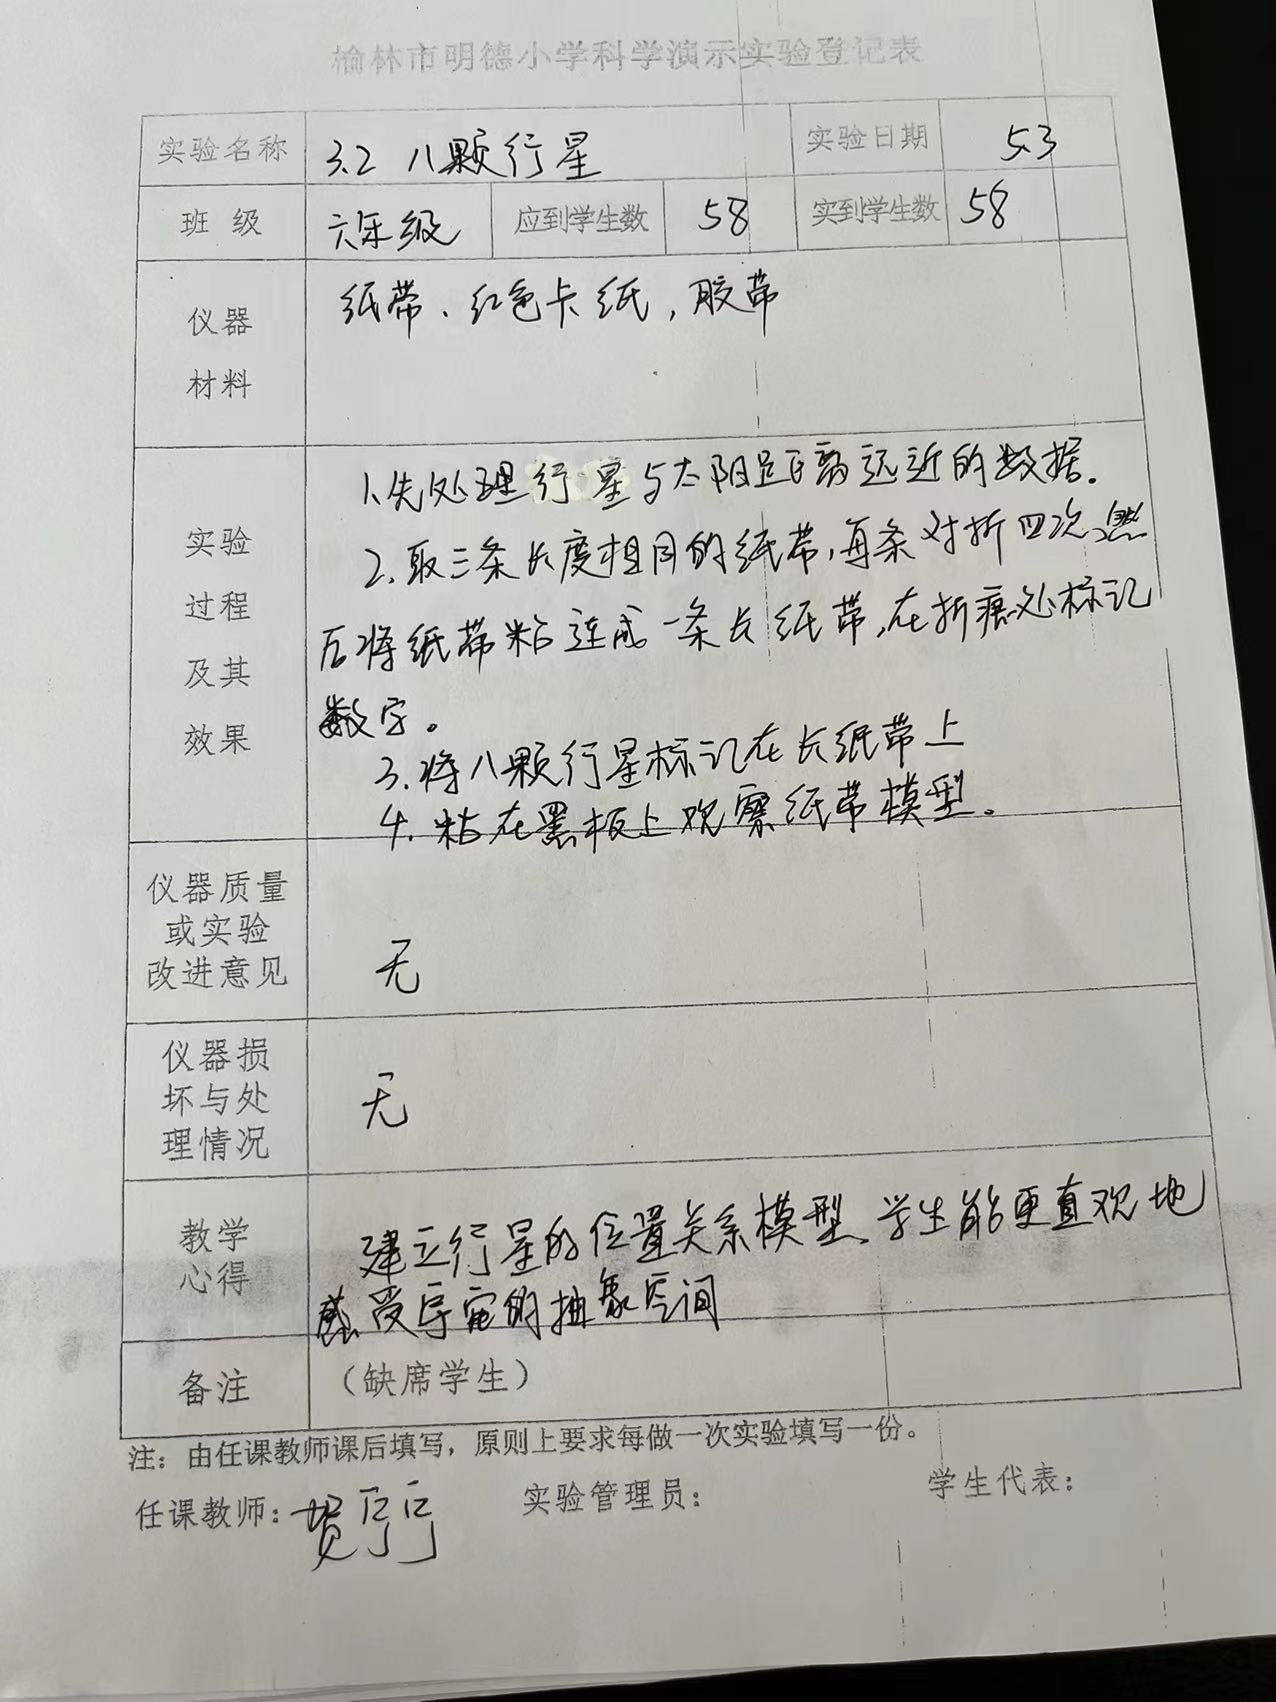 榆林市明德小学科学演示实验登记表
实验名称 3.2 八颗行星 实验日期 5.3
班 级 六年级 应到学生数 58 实到学生数 58
仪器 纸带、红色卡纸，胶带
材料
1.先处理行星与太阳距离远近的数据.
实验 2.取三条长度相同的纸带,每条对折四次,然
过程 后将纸带粘连成一条长纸带,在折痕处标记
及其 数字。
效果 3.将八颗行星标记在长纸带上
4.粘在黑板上观察纸带模型。
仪器质量
或实验
改进意见 无
仪器损
坏与处 无
理情况
教学 建立行星的位置关系模型、学生能更直观地
心得 感受宇宙的抽象空间
备注 （缺席学生）
注：由任课教师课后填写，原则上要求每做一次实验填写一份。
任课教师：贺 实验管理员： 学生代表：